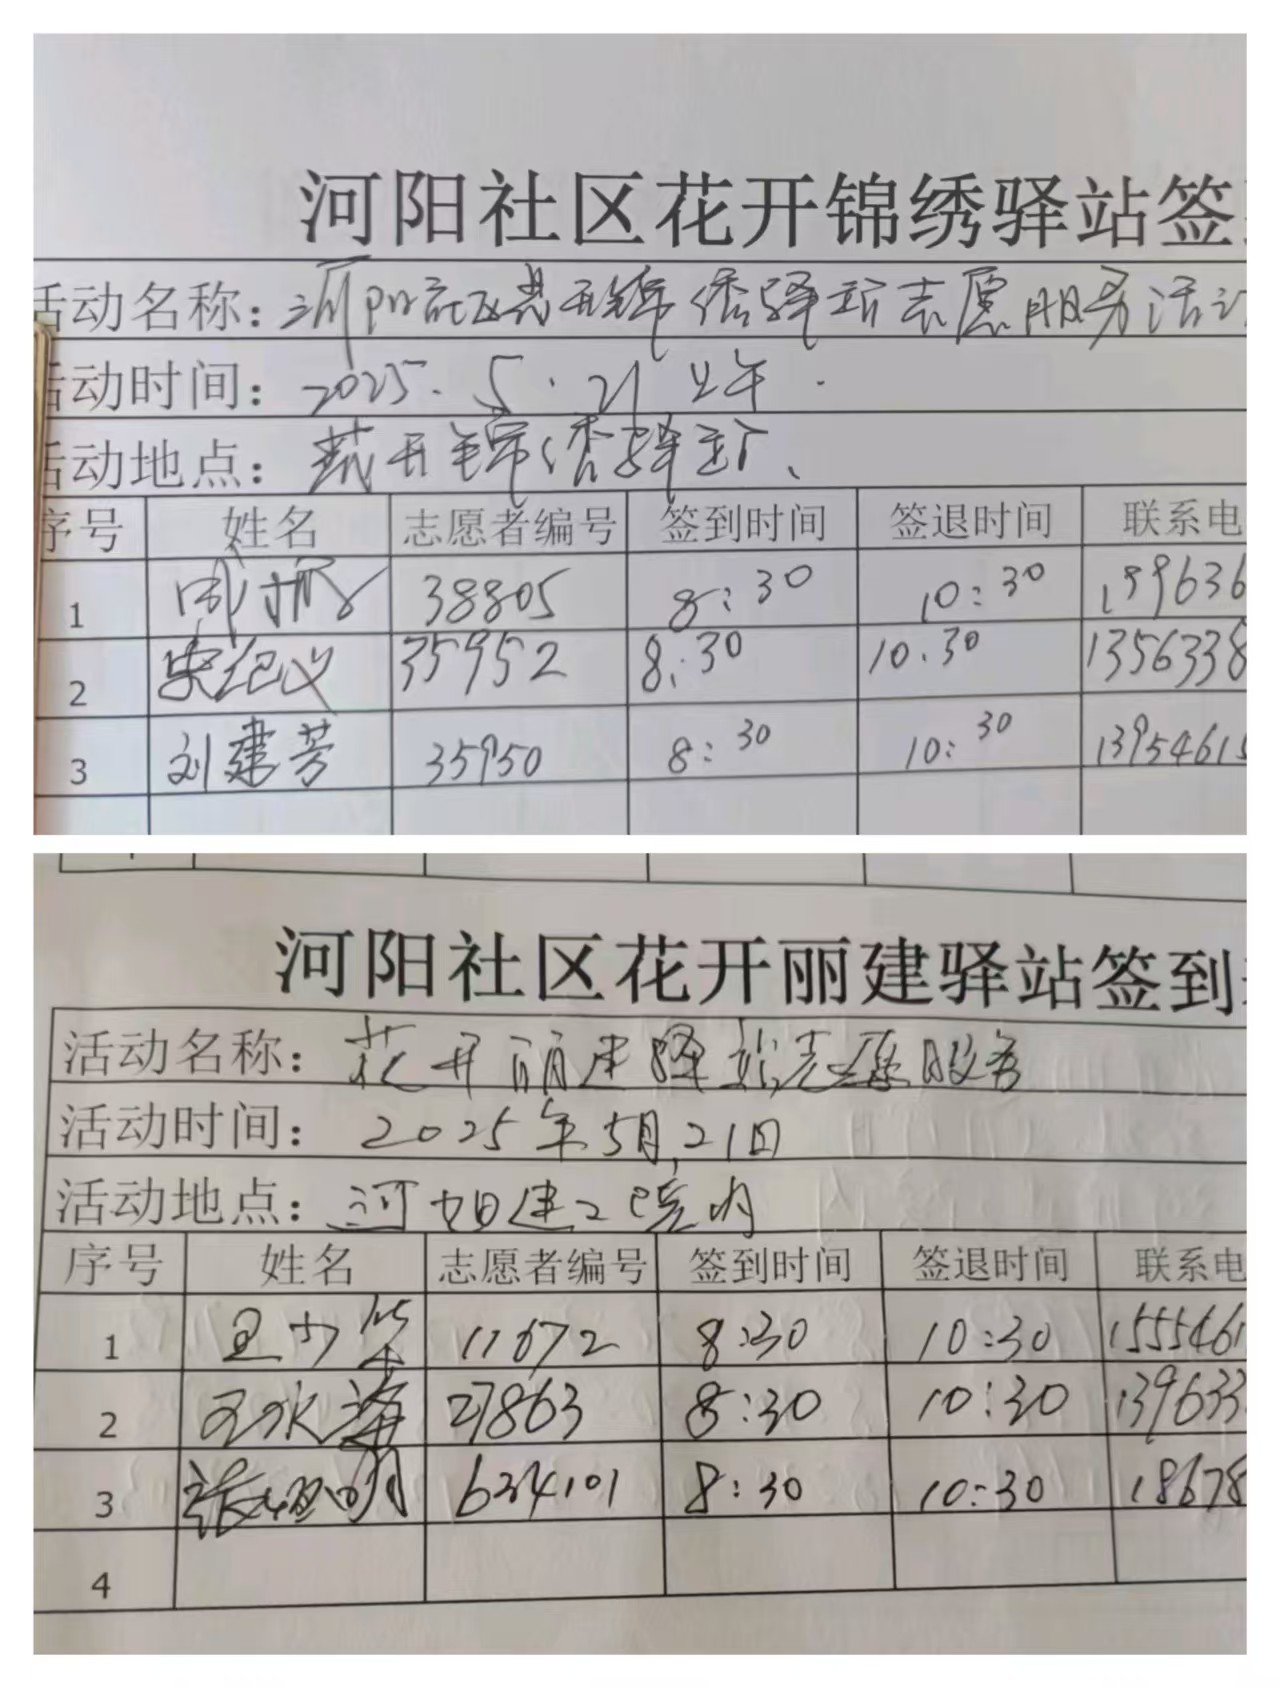 河阳社区花开锦绣驿站签
活动名称：河阳社区花开锦绣驿站志愿服务活动
活动时间：2025.5.21上午.
活动地点：花开锦绣驿站、
序号 姓名 志愿者编号 签到时间 签退时间 联系电
1 38805 8:30 10:30 199636
2 宋纪义 35952 8:30 10.30 1356338
3 刘建芳 35950 8:30 10:30 1395461
河阳社区花开丽建驿站签到
活动名称：花开丽建驿站志愿服务
活动时间：2025年5月21日
活动地点：河阳建工院内
序号 姓名 志愿者编号 签到时间 签退时间 联系电
1 11672 8:30 10:30 1555461
2 王永海 27863 8:30 10:30 139633
3 634101 8:30 10:30 18678
4